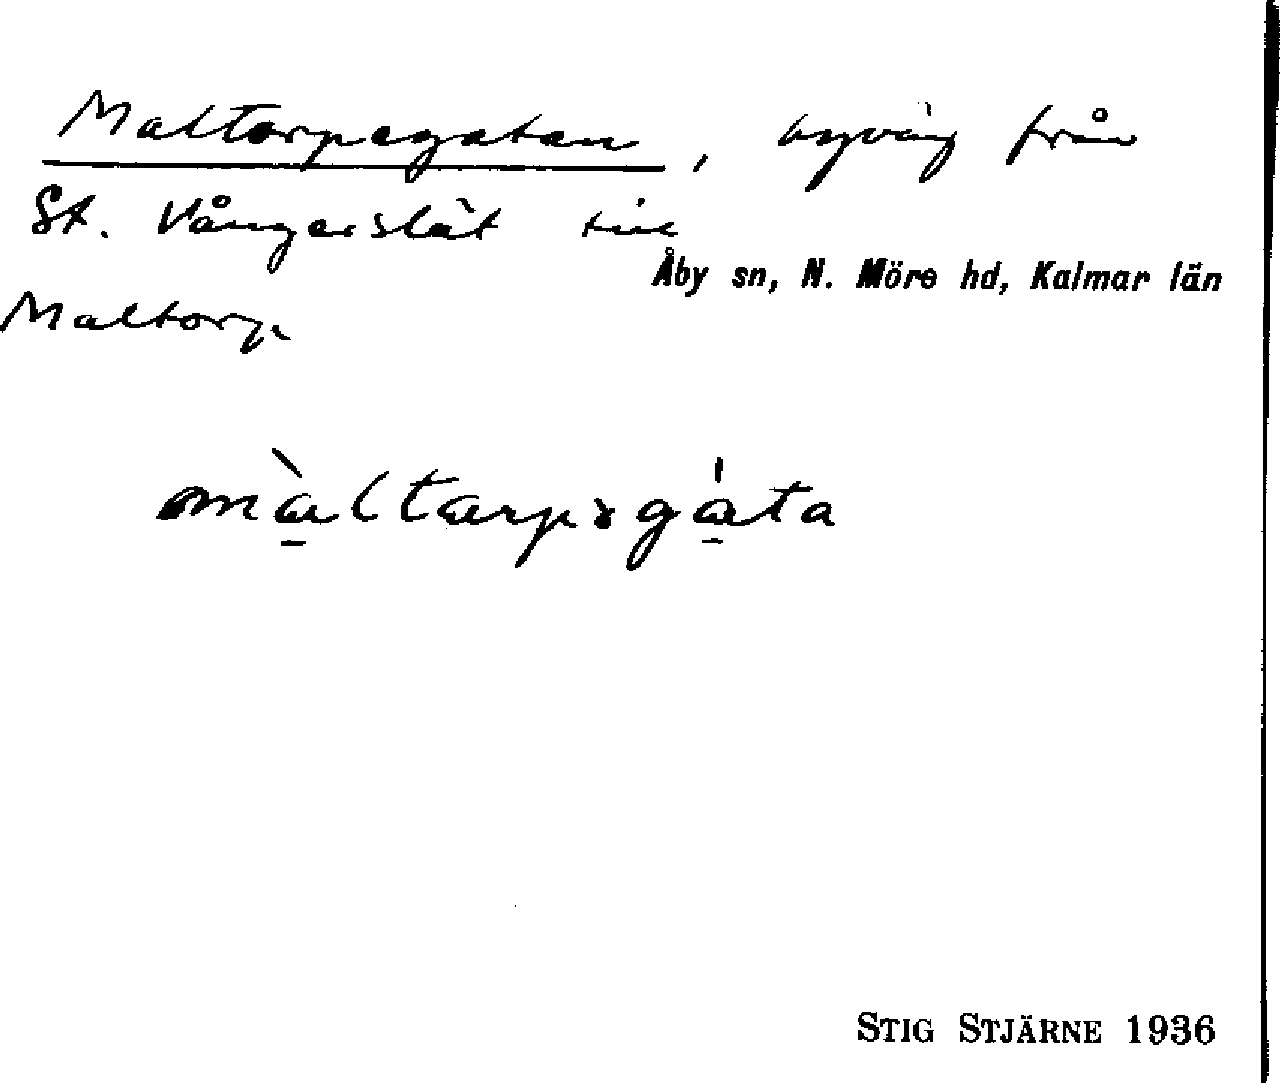 Maltorpsgatan, byväg från
St. Vångerslät till
Åby sn, N. Möre hd, Kalmar län
Maltorp
màltarpsgáta
STIG STJÄRNE 1936